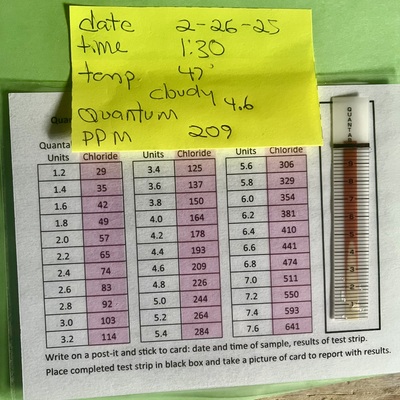 date 2-26-25
time 1:30
temp. 47°
cloudy
Quantum 4.6
PPM 209
Units Chloride Units Chloride Units Chloride
1.2 29 3.4 125 5.6 306
1.4 35 3.6 137 5.8 329
1.6 42 3.8 150 6.0 354
1.8 49 4.0 164 6.2 381
2.0 57 4.2 178 6.4 410
2.2 65 4.4 193 6.6 441
2.4 74 4.6 209 6.8 474
2.6 83 4.8 226 7.0 511
2.8 92 5.0 244 7.2 550
3.0 103 5.2 264 7.4 593
3.2 114 5.4 284 7.6 641
Write on a post-it and stick to card: date and time of sample, results of test strip.
Place completed test strip in black box and take a picture of card to report with results.